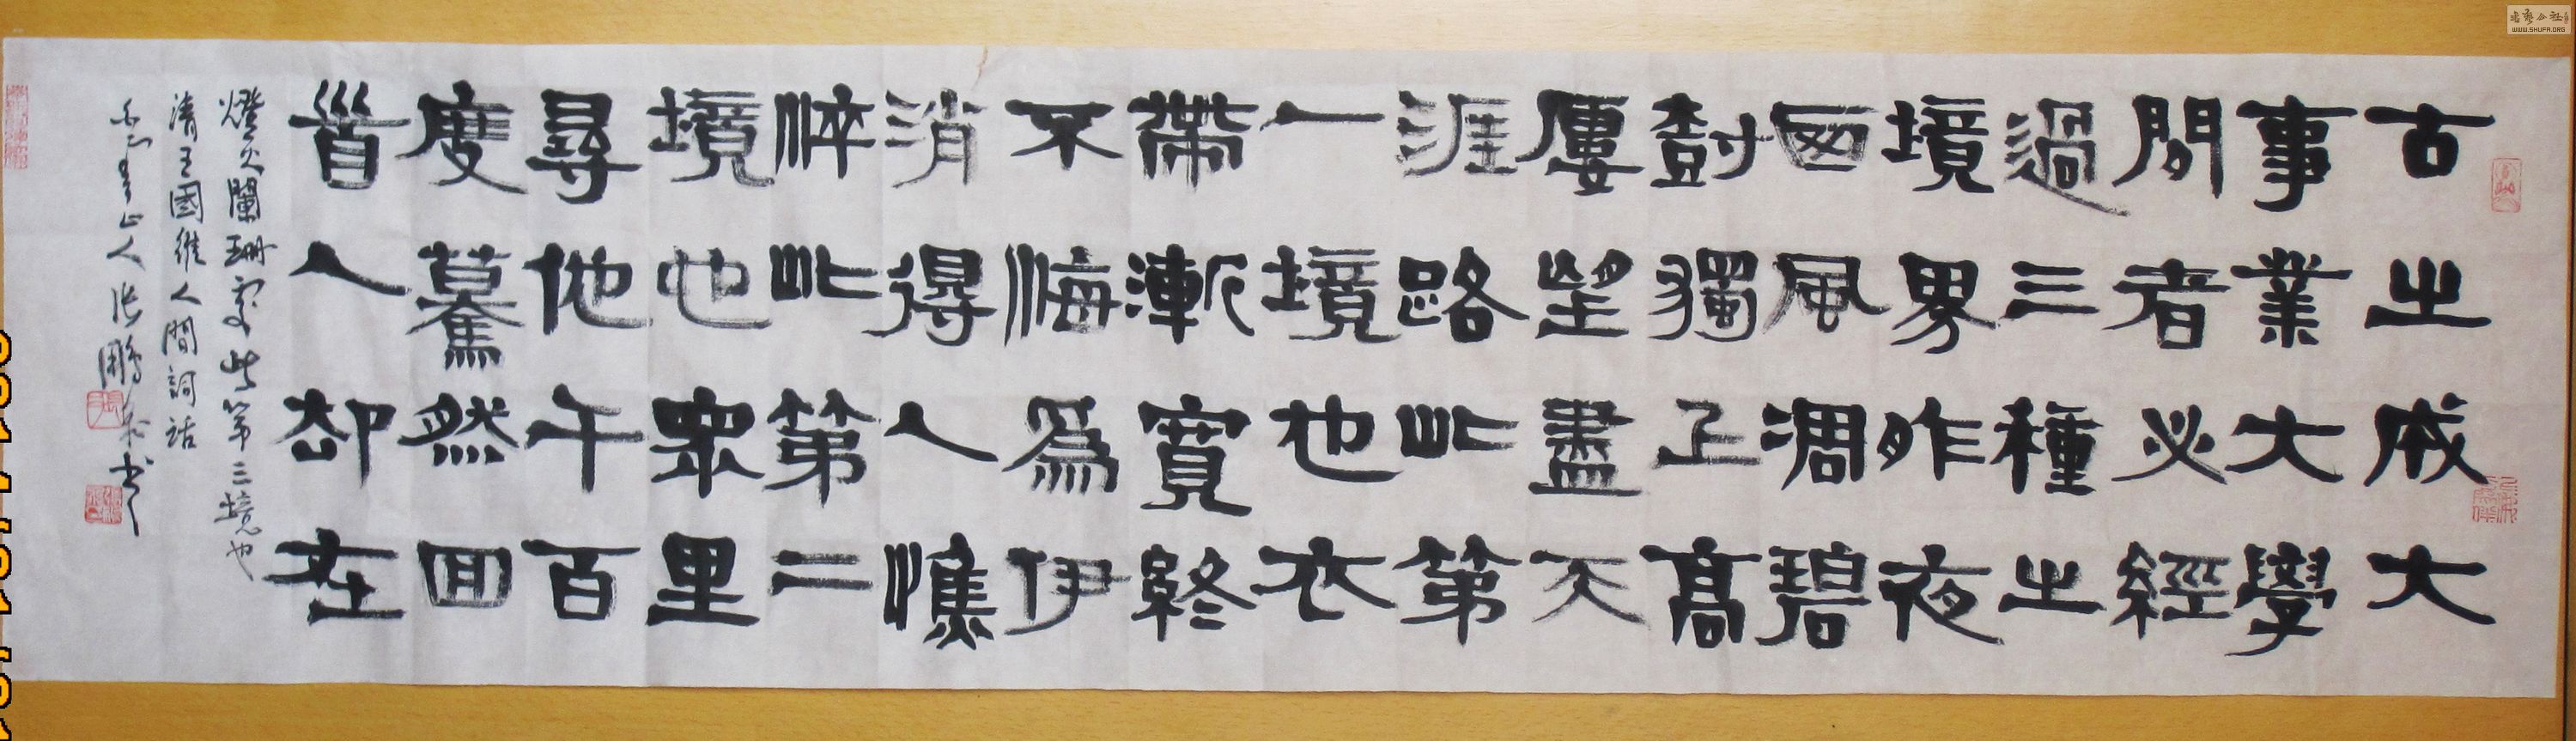 古之成大
事業大學
問者必經
過三種之
境界昨夜
西風凋碧
樹獨上高
樓望盡天
涯路此第
一境也衣
帶漸寬終
不悔爲伊
消得人憔
悴此第二
境也眾里
尋他千百
度驀然回
首人卻在
燈火闌珊處此第三境也
清王國維人間詞話
上人張鵬書
WWW.SHUFA.ORG